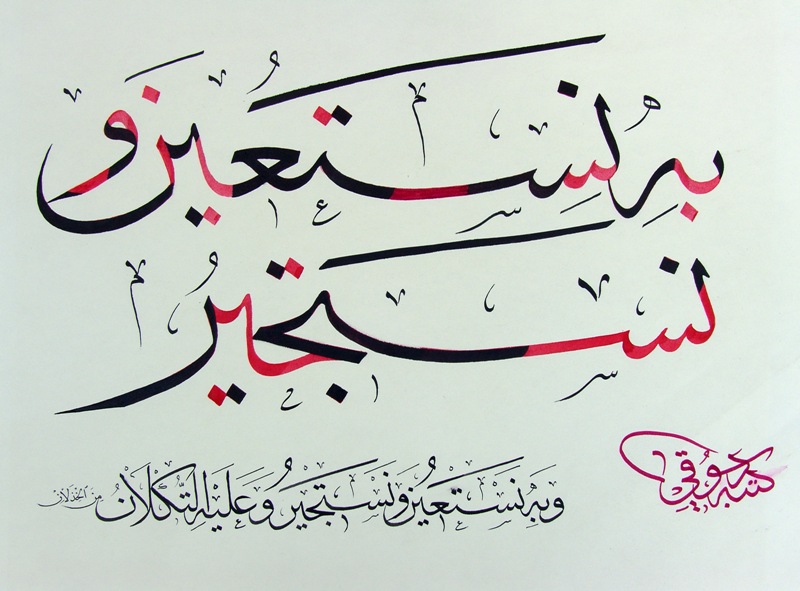 به نستعين و
نستجير
وبه نستعين ونستجير وعليه التكلان من الخذلان
كتبه